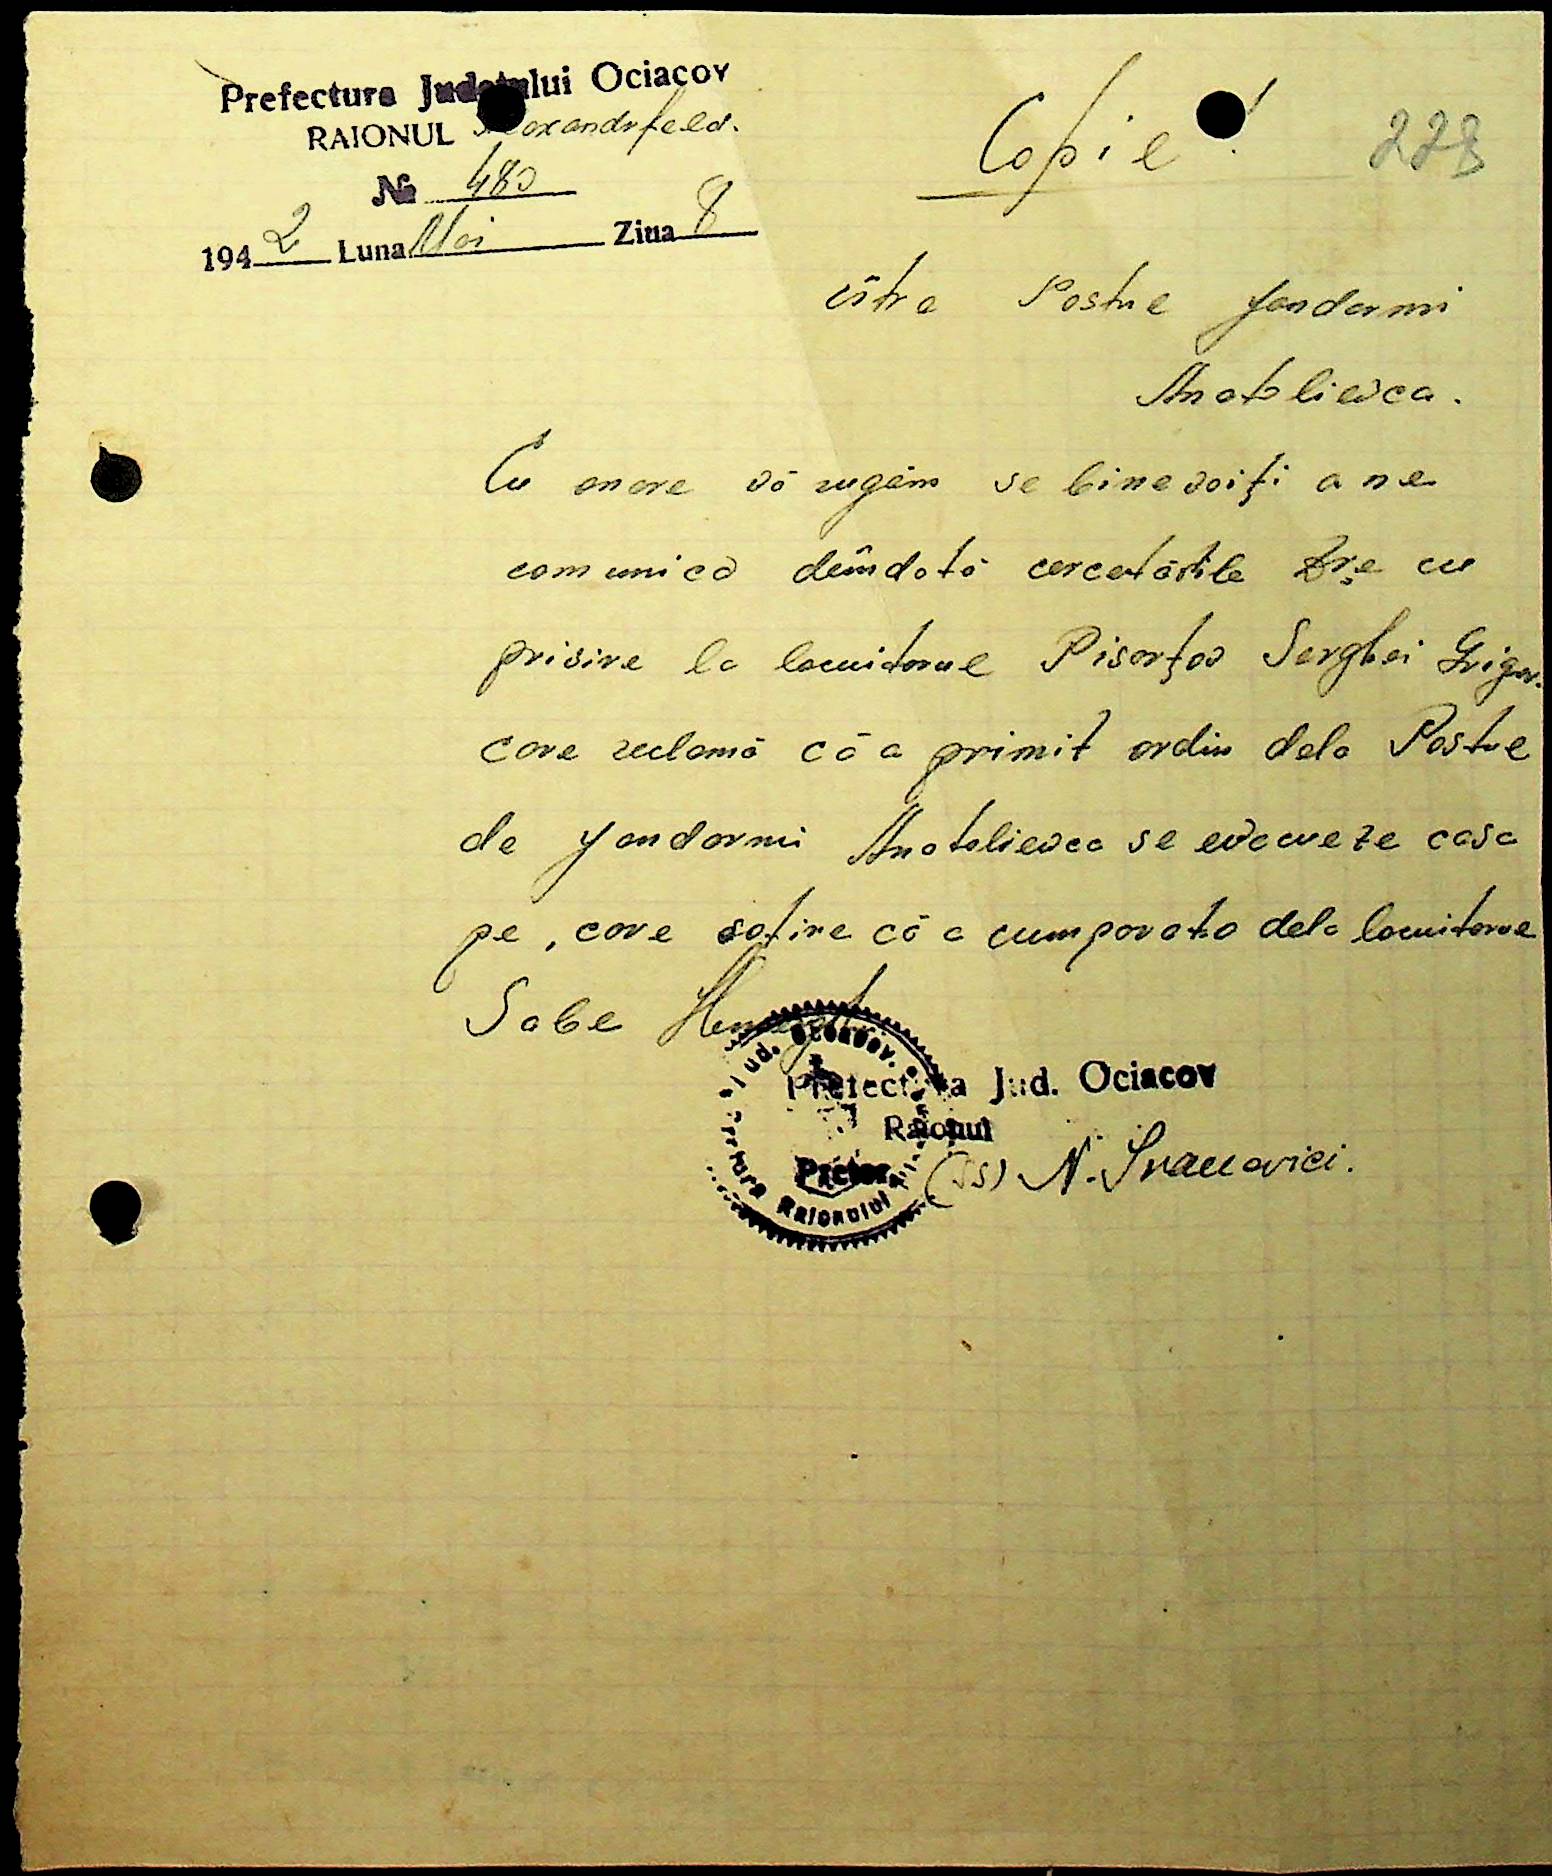 Prefectura Județului Ociacov
RAIONUL Alexandrfeld.
№ 480
1942 Luna Mai Ziua 8
Copie!
228
cătra Postul Jandarmi
Anatolievca.
Cu onore vă rugăm se binevoiți a ne
comunica deîndată cercetările Dvs. cu
privire la locuitorul Pisarțov Serghei Grigor.
care reclamă că a primit ordin dela Postul
de Jandarmi Anatolievca se evacueze casa
pe, care susține că a cumparato dela locuitorul
Sabe
Prefectura Jud. Ociacov
Raionul
Pretor
(ss) N. Ivanovici.